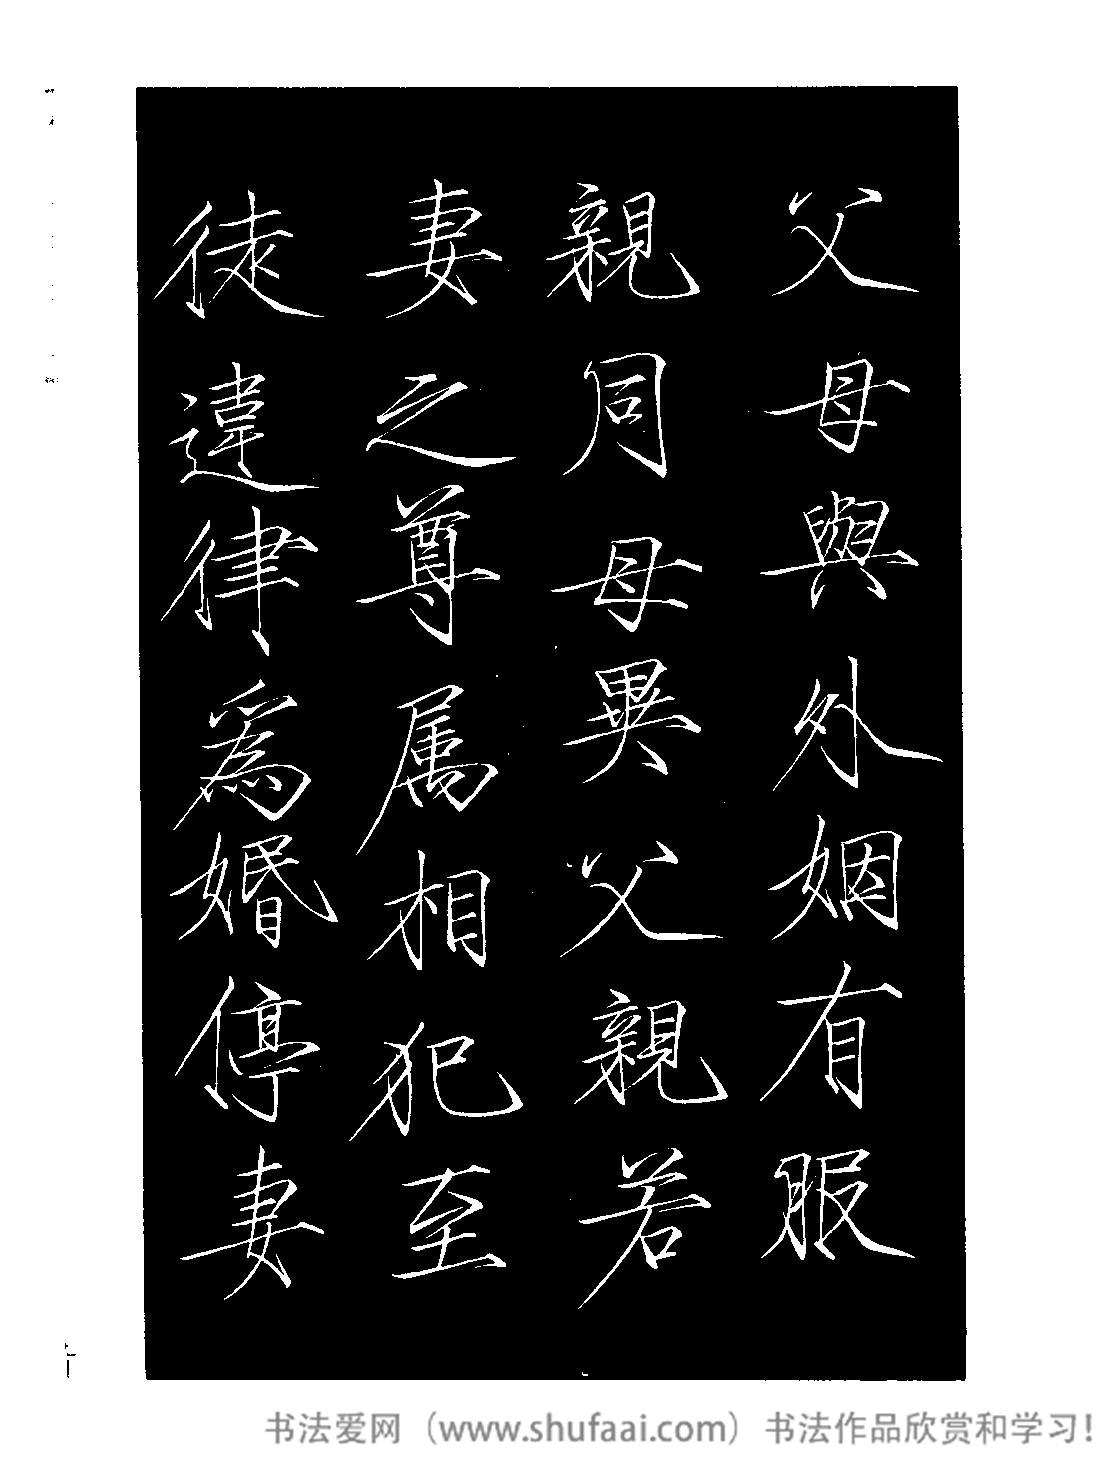 父母與外姻有服
親同母異父親若
妻之尊属相犯至
徒違律爲婚停妻
书法爱网（www.shufaai.com）书法作品欣赏和学习！